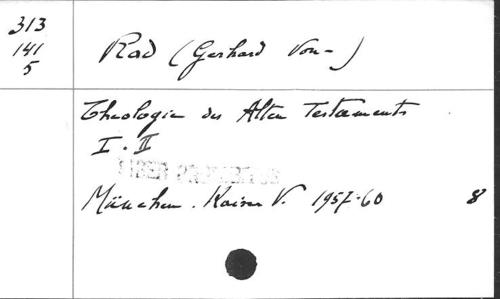 313
141
5
Rad (Gerhard von-)
Theologie des Alten Testaments
I. II
München. Kaiser V. 1957-60 8